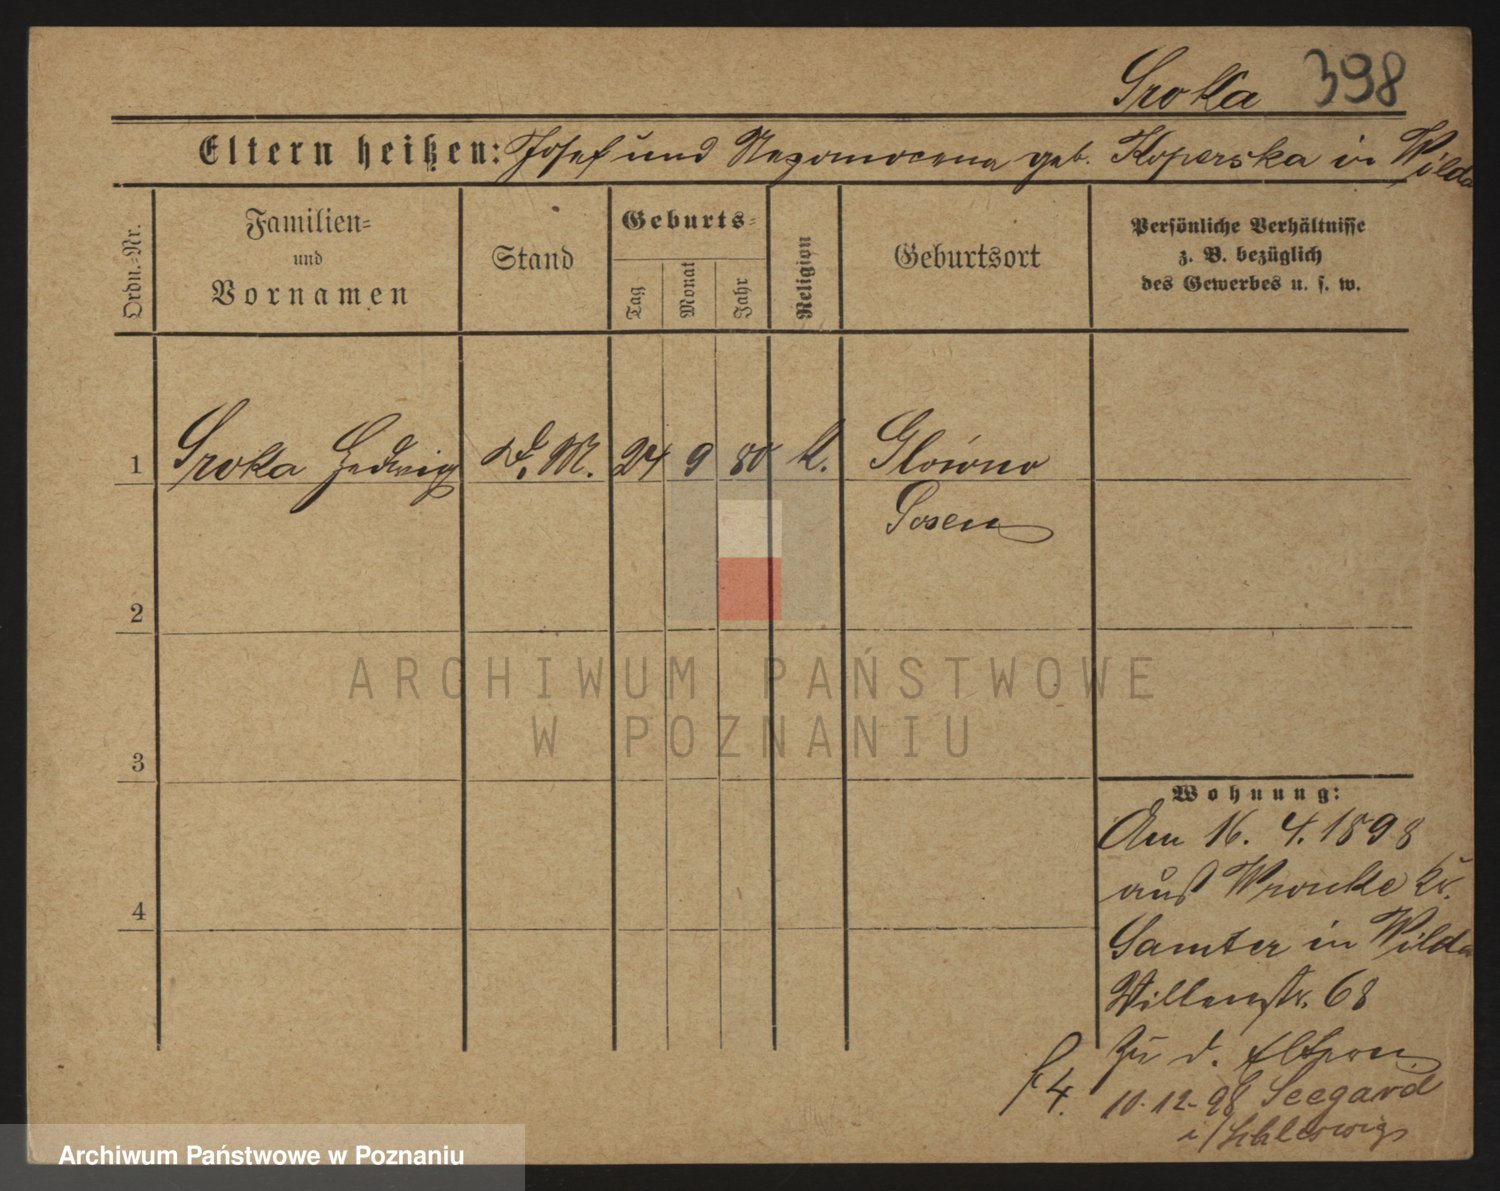 Sroka 398
Eltern heißen: Josef und Nepomocena geb. Koperska in Wilda
Ordn.-Nr.
Familien-
und
Vornamen
Stand
Geburts-
Tag
Monat
Jahr
Religion
Geburtsort
Persönliche Verhältnisse
z. B. bezüglich
des Gewerbes u. s. w.
1 Sroka Hedwig D. M. 24 9 80 k. Glowno
Posen
2
ARCHIWUM PAŃSTWOWE
W POZNANIU
3
Wohnung:
Am 16. 4. 1898
aus Wronke Kr.
4
Samter in Wilda
Villenstr. 68
zu d. Eltern
f 4.
10.12.98 Seegard
i/Schleswig
Archiwum Państwowe w Poznaniu